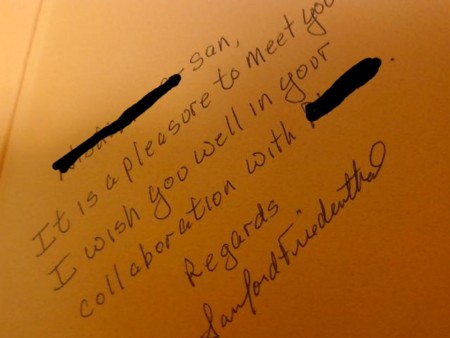 -san,
It is a pleasure to meet you
I wish you well in your
collaboration with
Regards
Sanford Friedenthal